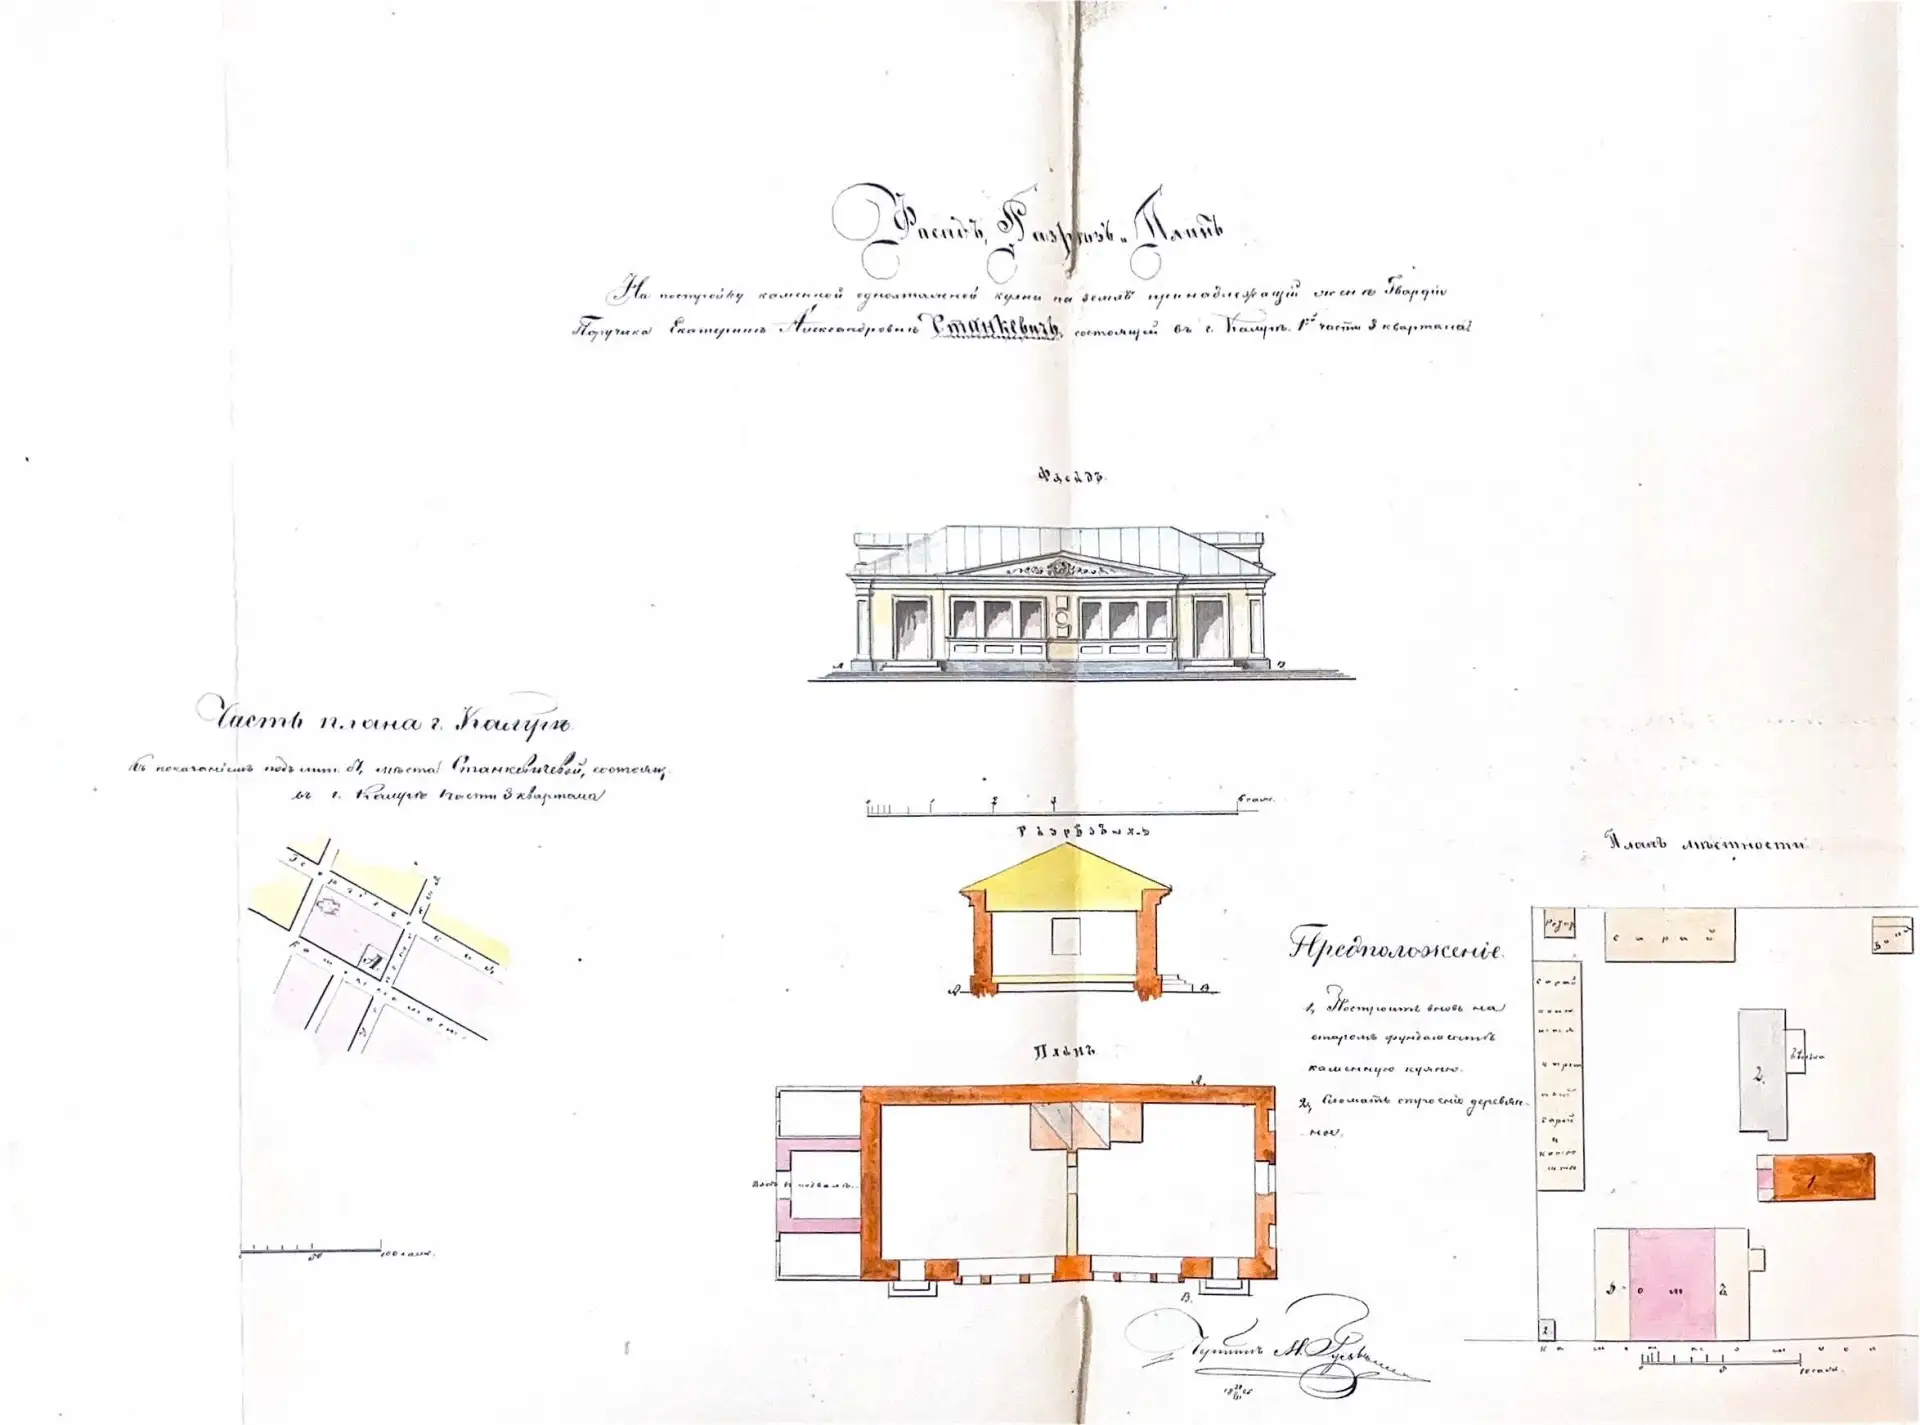 Фасадъ, Разрѣзъ и Планъ
На постройку каменной одноэтажной кухни на землѣ принадлежащій женѣ Гвардіи
Поручика Екатеринѣ Александровнѣ Станкевичъ, состоящей въ г. Калугѣ, 1й части 3 квартала
Фасадъ.
А В
Часть плана г. Калуги
съ показаніемъ подъ лит. А, мѣста Станкевичевой, состоящ.
въ г. Калугѣ части 3 квартала
А
50 100 саж.
6 саж.
Разрѣзъ
А В
Планъ
А.
В.
Предположеніе.
1, Построить вновь на
старомъ фундаментѣ
каменную кухню.
2, Сломать строеніе деревян-
ное.
Планъ мѣстности
сарай
сарай
сарай
и
2.
1.
Домъ
2.
10 саж.